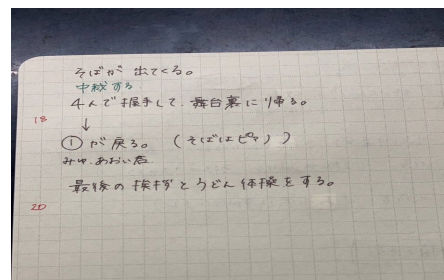 そばが 出てくる。
中裁する
4人で握手して、舞台裏に帰る。
18
↓
①が戻る。(そばはピマ)
みゆ、あおい君
最後の挨拶とうどん体操をする。
20